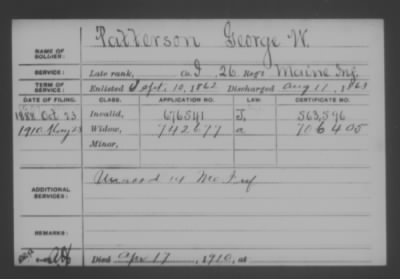 Patterson George W.
NAME OF SOLDIER:
SERVICE: Late rank, Co. I, 26 Reg't Maine Inf.
TERM OF SERVICE: Enlisted Sept. 10, 1862 Discharged Aug 17, 1863
DATE OF FILING. CLASS. APPLICATION NO. LAW. CERTIFICATE NO.
1888 Oct. 23 Invalid, 676541 J, 563,596
1910 May 23 Widow, 742677 a 706405
Minor,
ADDITIONAL SERVICES: Unassd 14 Me Inf
REMARKS:
Died Apr 17, 1910, at